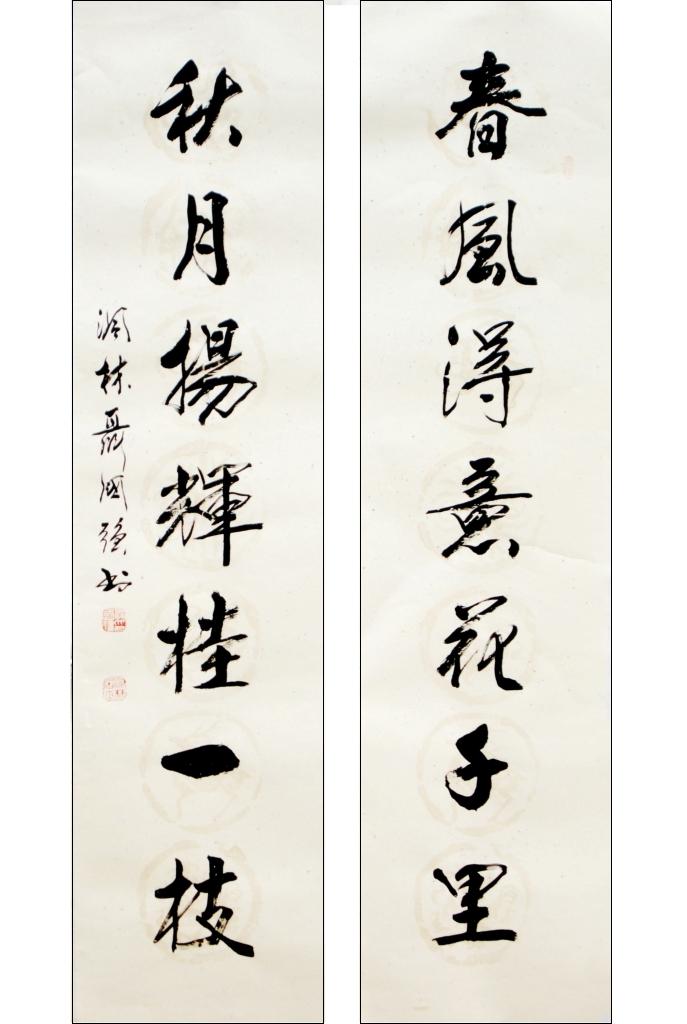 春風得意花千里
秋月揚輝桂一枝
林聶國強書